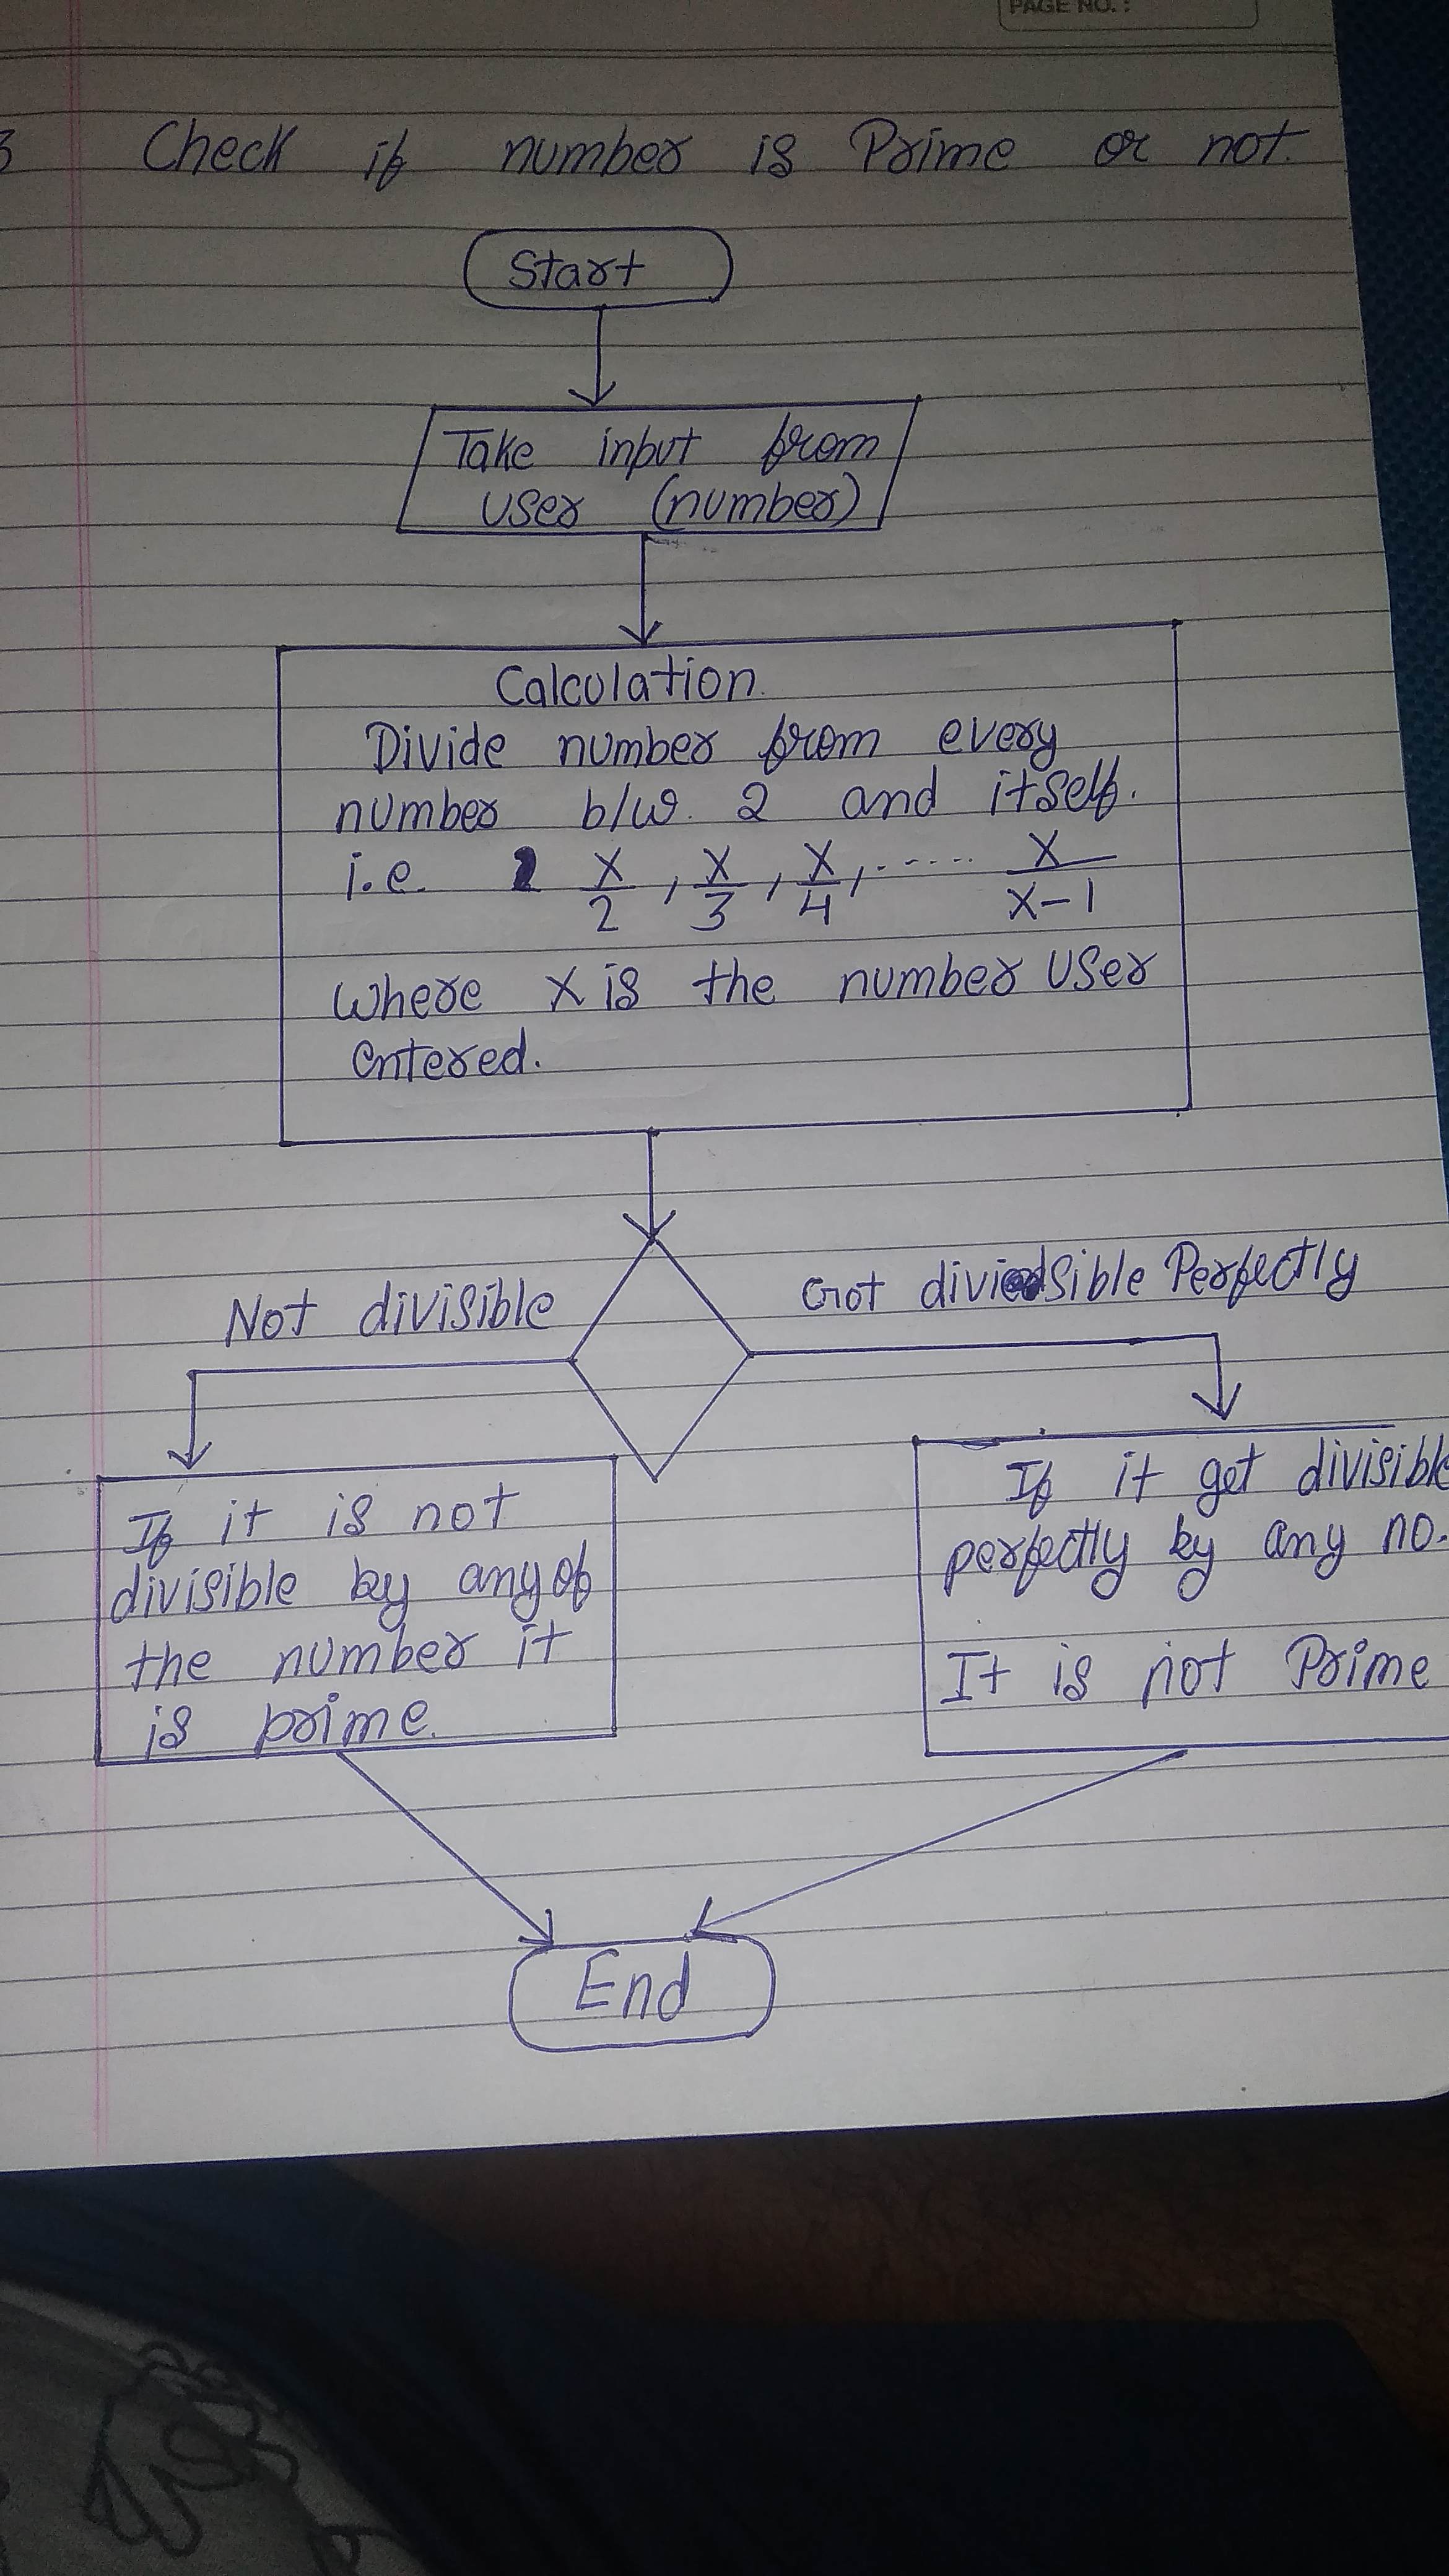 PAGE NO. :
3 Check if number is Prime or not.
Start
Take input from
user (number)
Calculation.
Divide number from every
number b/w. 2 and itself.
i.e. x/2 , x/3 , x/4 , ...... x/x-1
where x is the number user
entered.
Not divisible
Got divisible Perfectly
If it is not
divisible by any of
the number it
is prime.
If it get divisible
perfectly by any no.
It is not Prime
End